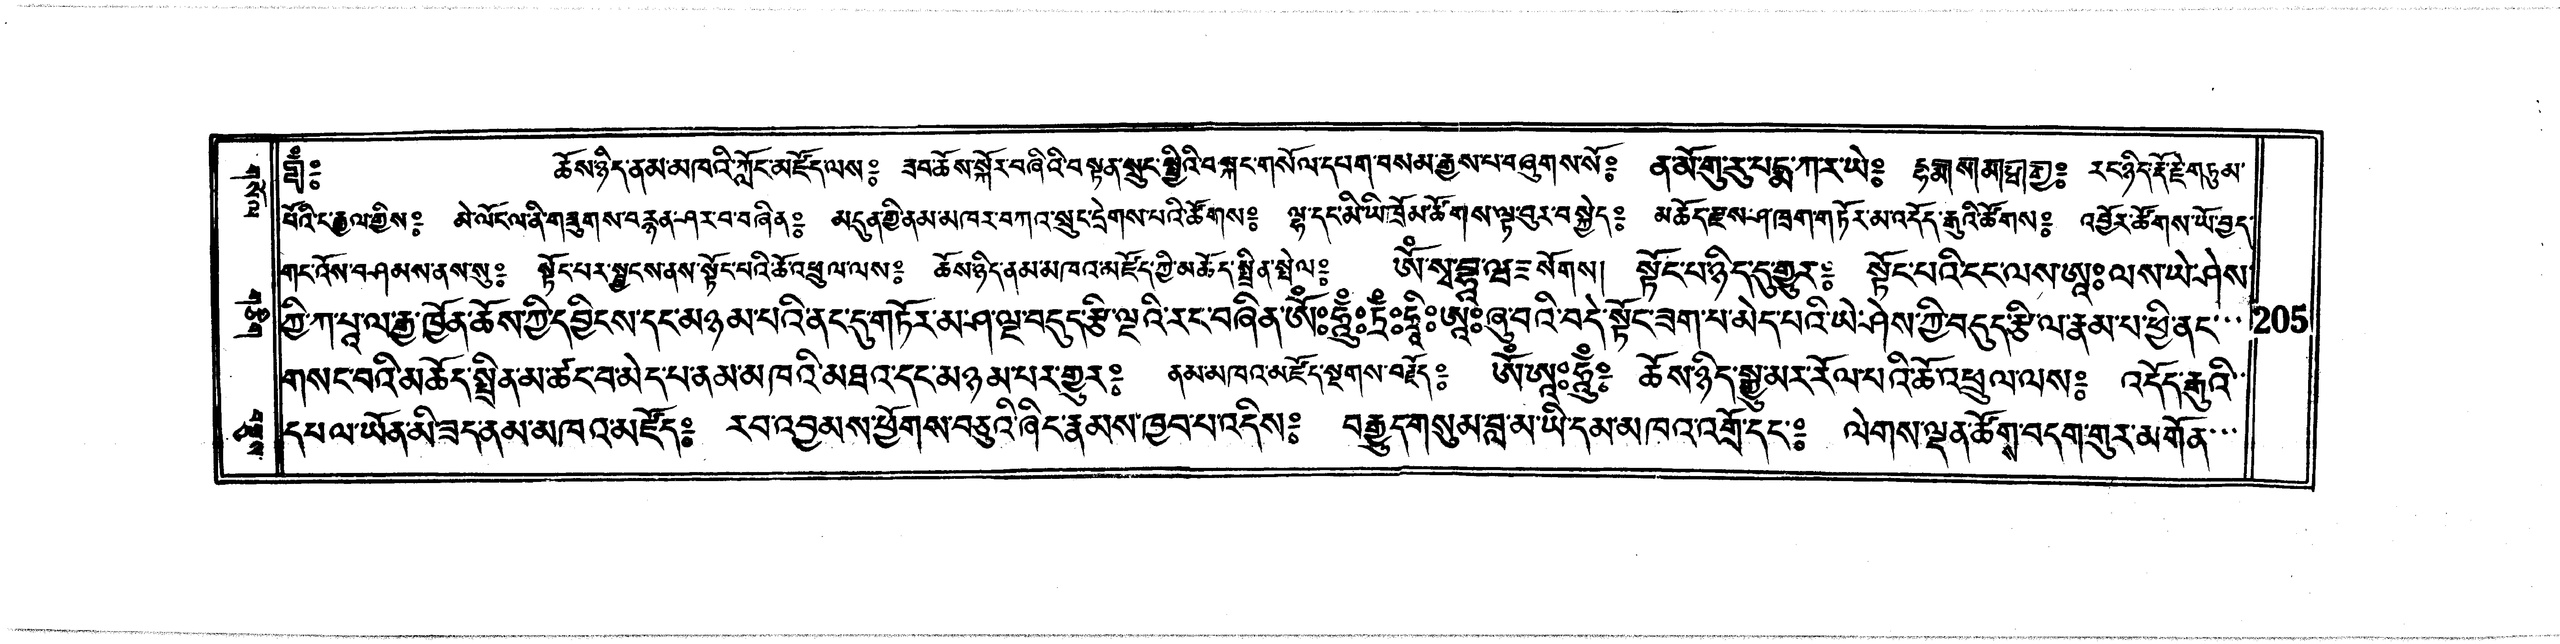 གྷྲཱིཾ༔ ཆོས་ཉིད་ནམ་མཁའི་ཀློང་མཛོད་ལས༔ ཟབ་ཆོས་སྐོར་བཞིའི་བསྟན་སྲུང་སྤྱིའི་བསྐང་གསོལ་དཔག་བསམ་རྒྱས་པ་བཞུགས་སོ༔ ན་མོ་གུ་རུ་པདྨ་ཀ་ར་ཡེ༔ རང་ཉིད་རྡོ་རྗེ་གཏུམ་
པོའི་ང་རྒྱལ་གྱིས༔ མེ་ལོང་ལ་ནི་གཟུགས་བརྙན་ཤར་བ་བཞིན༔ མདུན་གྱི་ནམ་མཁར་བཀའ་སྲུང་དྲེགས་པའི་ཚོགས༔ ལྷ་དང་མི་ཡི་ཁྲོམ་ཚོགས་ལྟ་བུར་བསྐྱེད༔ མཆོད་རྫས་ཤ་ཁྲག་གཏོར་མ་འདོད་རྒུའི་ཚོགས༔ འབྱོར་ཚོགས་ཡོ་བྱད་
གང་འོས་བཤམས་ནས་སུ༔ སྟོང་པར་སྦྱངས་ནས་སྟོང་པའི་ཆོ་འཕྲུལ་ལས༔ ཆོས་ཉིད་ནམ་མཁའ་མཛོད་ཀྱི་མཆོད་སྤྲིན་སྤེལ༔ ཨོཾ་སྭ་བྷཱ་ཝ་ སོགས། སྟོང་པ་ཉིད་དུ་གྱུར༔ སྟོང་པའི་ངང་ལས་ཨཱ༔ ལས་ཡེ་ཤེས་
ཀྱི་ཀ་པཱ་ལ་རྒྱ་ཁྱོན་ཆོས་ཀྱི་དབྱིངས་དང་མཉམ་པའི་ནང་དུ་གཏོར་མ་ཤ་ལྔ་བདུད་རྩི་ལྔའི་རང་བཞིན་ཨོཾ༔ཧཱུྃ༔ཏྲཾ༔ཧྲཱིཿ༔ཨཱ༔ ཞུ་བའི་བདེ་སྟོང་ཟག་པ་མེད་པའི་ཡེ་ཤེས་ཀྱི་བདུད་རྩི་ལ་རྣམ་པ་ཕྱི་ནང་…
205
གསང་བའི་མཆོད་སྤྲིན་མ་ཚང་བ་མེད་པ་ནམ་མཁའི་མཐའ་དང་མཉམ་པར་གྱུར༔ ནམ་མཁའ་མཛོད་སྔགས་བརྗོད༔ ཨོཾ་ཨཱ༔ཧཱུྃ༔ ཆོས་ཉིད་སྒྱུ་མར་རོལ་པའི་ཆོ་འཕྲུལ་ལས༔ འདོད་རྒུའི་
དཔལ་ཡོན་མི་ཟད་ནམ་མཁའ་མཛོད༔ རབ་འབྱམས་ཕྱོགས་བཅུའི་ཞིང་རྣམས་ཁྱབ་པ་འདིས༔ བརྒྱུད་གསུམ་བླ་མ་ཡི་དམ་མཁའ་འགྲོ་དང་༔ ལེགས་ལྡན་ཚོགས་བདག་གུར་མགོན་…